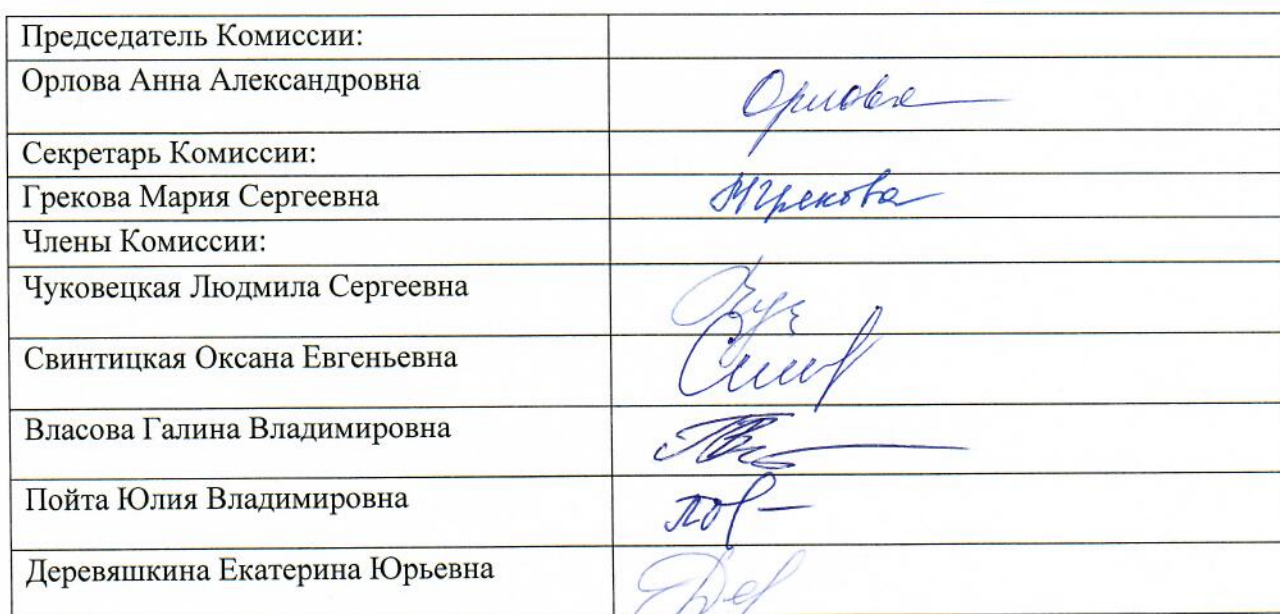 Председатель Комиссии:
Орлова Анна Александровна Орлова
Секретарь Комиссии:
Грекова Мария Сергеевна МГрекова
Члены Комиссии:
Чуковецкая Людмила Сергеевна
Свинтицкая Оксана Евгеньевна
Власова Галина Владимировна
Пойта Юлия Владимировна
Деревяшкина Екатерина Юрьевна